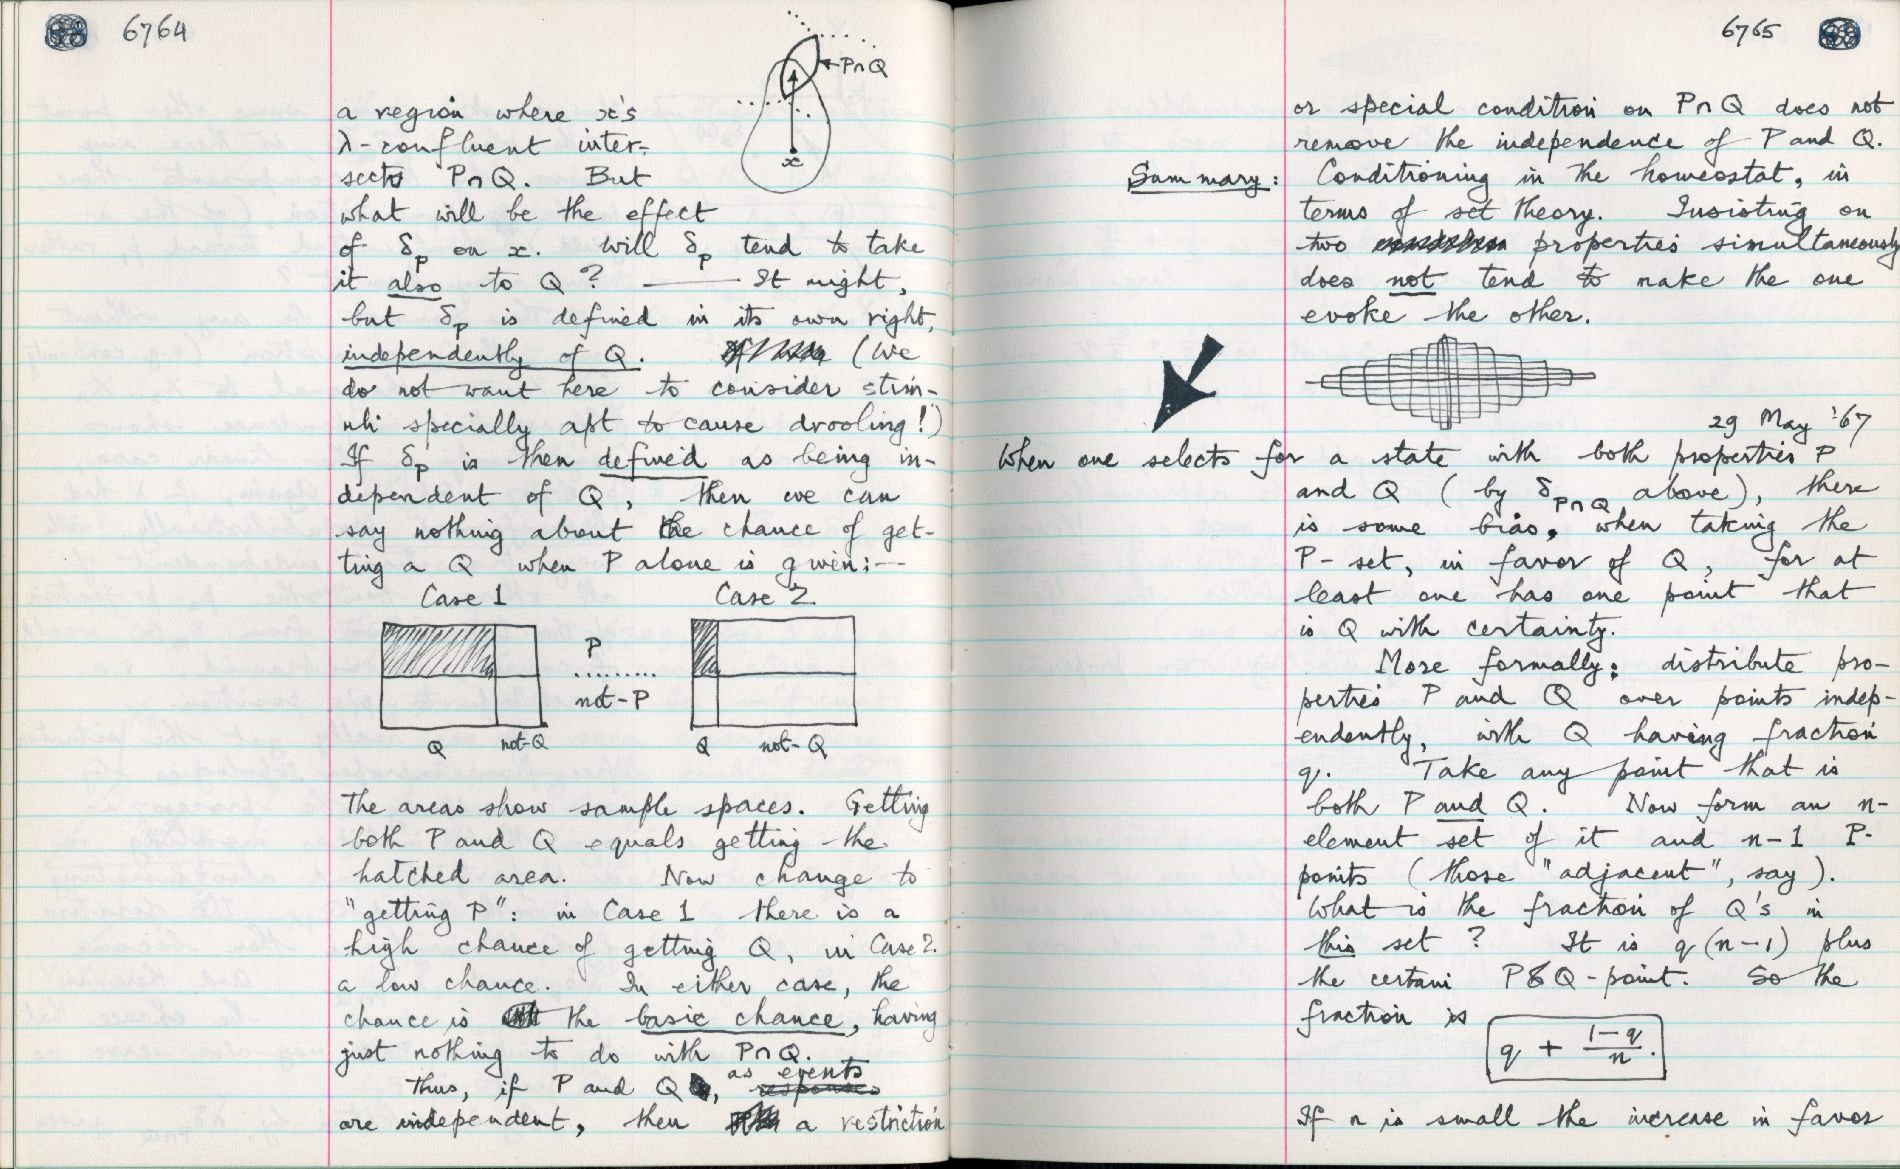 6764
P∩Q
a region where x's
λ-confluent inter-
sects P∩Q. But
x
what will be the effect
of δp on x. Will δp tend to take
it also to Q? —— It might,
but δp is defined in its own right,
independently of Q. (We
do not want here to consider stim-
uli specially apt to cause drooling!)
If δp is then defined as being in-
dependent of Q, then we can
say nothing about the chance of get-
ting a Q when P alone is given:--
Case 1 Case 2
P
not-P
Q not-Q Q not-Q
The areas show sample spaces. Getting
both P and Q equals getting the
hatched area. Now change to
"getting P": in Case 1 there is a
high chance of getting Q, in Case 2.
a low chance. In either case, the
chance is the basic chance, having
just nothing to do with P∩Q.
as events
Thus, if P and Q, responses
are independent, then a restriction
6765
or special condition on P∩Q does not
remove the independence of P and Q.
Summary: Conditioning in the homeostat, in
terms of set theory. Insisting on
two properties simultaneously
does not tend to make the one
evoke the other.
29 May '67
When one selects for a state with both properties P
and Q (by δP∩Q above), there
is some bias, when taking the
P-set, in favor of Q, for at
least one has one point that
is Q with certainty.
More formally: distribute pro-
perties P and Q over points indep-
endently, with Q having fraction
q. Take any point that is
both P and Q. Now form an n-
element set of it and n-1 P-
points (those "adjacent", say).
What is the fraction of Q's in
this set? It is q(n-1) plus
the certain P&Q-point. So the
fraction is
q + (1-q)/n.
If n is small the increase in favor